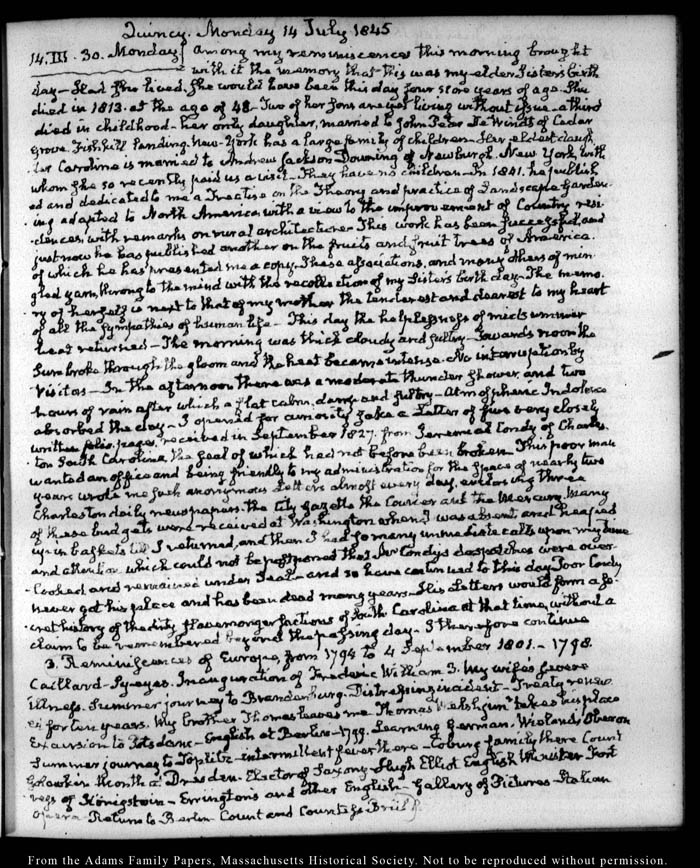 Quincy. Monday 14 July 1845
14. III. 30. Monday} among my reminiscences this morning brought
with it the memory that this was my elder Sisters birth
day—Had She lived, She would have been this day four score years of age. She
died in 1813. at the age of 48—Two of her sons are yet living without issue—a third
died in childhood—her only daughter, married to John Peter De Windt of Cedar
Grove Fishkill Landing New-York has a large family of children—Her eldest daugh
ter Carolina is married to Andrew Jackson Downing of Newburgh, New York, with
whom she so recently paid us a visit—They have no children—In 1841. he publish
ed and dedicated to me a Treatise on the Theory and practice of Landscape Garden
ing adapted to North America with a view to the improvement of Country resi
dences, with remarks on rural architecture—This work has been successful, and
just now he has published another on the fruits and fruit trees of America.
of which he has presented me a copy. These associations, and many others of min
gled yarn, throng to the mind with the recollection of my Sisters birth day—The memo
ry of herself is next to that of my mother the tenderest and dearest to my heart
of all the sympathies of human life—This day the helplessness of midsummer
heat returned—The morning was thick cloudy and sultry—Towards noon the
Sun broke through the gloom and the heat became intense. No interruption by
Visitors—In the afternoon there was a moderate thunder shower, and two
hours of rain after which a flat calm, damp and sultry—Atmospheric Indolence
absorbed the day—I opened for curiosity sake a Letter of five very closely
written folio pages, received in September 1827. from Jeremiad Condy of Charles
ton South Carolina, the seal of which had not before been broken—This poor man
wanted an office and being friendly to my administration for the space of nearly two
years wrote me such anonymous Letters almost every day, enclosing three
Charleston daily newspapers the City Gazette the Courier and the Mercury. Many
of these budgets were received at Washington when I was absent and heaped
up in baskets till I returned, and then I had so many immediate calls upon my time
and attention which could not be postponed that Mr Condys despatches were over
looked and remained under Seal—and so have continued to this day. Poor Condy
never got his place and has been dead many years—His Letters would form a se
cret history of the dirty slavemonger factions of South Carolina at that time, without a
claim to be remembered beyond the passing day—I therefore continue
3. Reminiscences of Europe, from 1794 to 4 September 1801.—1798.
Caillard—Sy-eyes. Inauguration of Frederic William 3. My wife's severe
illness. Summer journey to Brandenburg. Distressing incident—Treaty renew
ed for ten years. My brother Thomas leaves me Thomas Welsh junr takes his place
Excursion to Potsdam—English at Berlin—1799. Learning German, Wielands Oberon
Summer journey to Töplitz—intermittent fever there—Coburg family there Count
Golowkin month at Dresden—Elector of Saxony—Hugh Elliot English Minister Fort
ress of Königstein—Errington's and other English—Gallery of Pictures—Italian
opera—Return to Berlin—Count and Countess Brühl
From the Adams Family Papers, Massachusetts Historical Society. Not to be reproduced without permission.